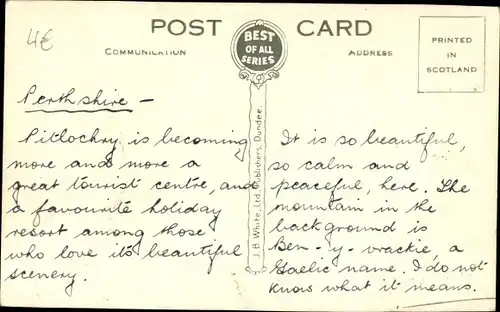 4€
POST CARD
BEST
OF ALL
SERIES
COMMUNICATION
ADDRESS
PRINTED
IN
SCOTLAND
Perthshire -
Pitlochry is becoming
more and more a
great tourist centre, and
a favourite holiday
resort among those
who love its beautiful
scenery.
J.B. White, Ltd. Publishers, Dundee.
It is so beautiful,
so calm and
peaceful, here. The
mountain in the
background is
Ben-y-vrackie, a
Gaelic name. I do not
know what it means.